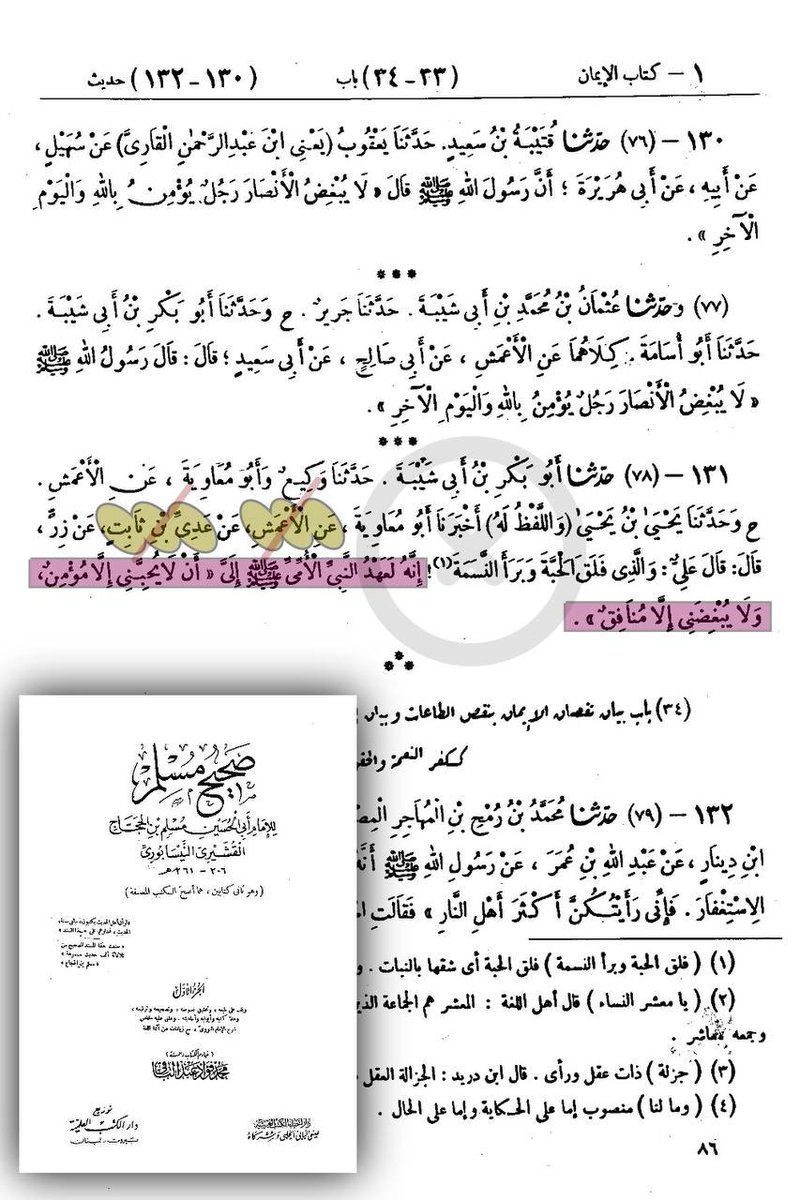 ١ – كتاب الإيمان (٣٣-٣٤) باب (١٣٠-١٣٢) حديث
١٣٠ – (٧٦) حدّثنا قُتَيْبَةُ بْنُ سَعِيدٍ. حَدَّثَنَا يَعْقُوبُ (يَعْنِي ابْنَ عَبْدِالرَّحْمٰنِ الْقَارِيَّ) عَنْ سُهَيْلٍ،
عَنْ أَبِيهِ، عَنْ أَبِي هُرَيْرَةَ؛ أَنَّ رَسُولَ اللهِ ﷺ قَالَ «لَا يُبْغِضُ الْأَنْصَارَ رَجُلٌ يُؤْمِنُ بِاللهِ وَالْيَوْمِ
الْآخِرِ».
***
(٧٧) وحدّثنا عُثْمَانُ بْنُ مُحَمَّدِ بْنِ أَبِي شَيْبَةَ. حَدَّثَنَا جَرِيرٌ. ح وَحَدَّثَنَا أَبُو بَكْرِ بْنُ أَبِي شَيْبَةَ.
حَدَّثَنَا أَبُو أُسَامَةَ. كِلَاهُمَا عَنِ الْأَعْمَشِ، عَنْ أَبِي صَالِحٍ، عَنْ أَبِي سَعِيدٍ؛ قَالَ: قَالَ رَسُولُ اللهِ ﷺ
«لَا يُبْغِضُ الْأَنْصَارَ رَجُلٌ يُؤْمِنُ بِاللهِ وَالْيَوْمِ الْآخِرِ».
***
١٣١ – (٧٨) حدّثنا أَبُو بَكْرِ بْنُ أَبِي شَيْبَةَ. حَدَّثَنَا وَكِيعٌ وَأَبُو مُعَاوِيَةَ، عَنِ الْأَعْمَشِ.
ح وَحَدَّثَنَا يَحْيَىٰ بْنُ يَحْيَىٰ (وَاللَّفْظُ لَهُ) أَخْبَرَنَا أَبُو مُعَاوِيَةَ، عَنِ الْأَعْمَشِ، عَنْ عَدِيِّ بْنِ ثَابِتٍ، عَنْ زِرٍّ،
قَالَ: قَالَ عَلِيٌّ: وَالَّذِي فَلَقَ الْحَبَّةَ وَبَرَأَ النَّسَمَةَ(١)! إِنَّهُ لَعَهْدُ النَّبِيِّ الْأُمِّيِّ ﷺ إِلَيَّ «أَنْ لَا يُحِبَّنِي إِلَّا مُؤْمِنٌ،
وَلَا يُبْغِضَنِي إِلَّا مُنَافِقٌ».
***
(٣٤) باب بيان نقصان الإيمان بنقص الطاعات وبيان
ككفر النعمة والحقو
١٣٢ – (٧٩) حدّثنا مُحَمَّدُ بْنُ رُمْحِ بْنِ الْمُهَاجِرِ الْمِصْ
ابْنِ دِينَارٍ، عَنْ عَبْدِ اللهِ بْنِ عُمَرَ، عَنْ رَسُولِ اللهِ ﷺ أَنَّهُ
الِاسْتِغْفَارَ. فَإِنِّي رَأَيْتُكُنَّ أَكْثَرَ أَهْلِ النَّارِ» فَقَالَتِ
(١) (فلق الحبة وبرأ النسمة) فلق الحبة أي شقها بالنبات. و
(٢) (يا معشر النساء) قال أهل اللغة: المعشر هم الجماعة الذين
وجمعه معاشر.
(٣) (جزلة) ذات عقل ورأي. قال ابن دريد: الجزالة العقل
(٤) (وما لنا) منصوب إما على الحكاية وإما على الحال.
٨٦
صحيح مسلم
للإمام أبي الحسين مسلم بن الحجاج
القشيري النيسابوري
٢٠٦ – ٢٦١ هـ
(وهو ثاني كتابين، هما أصح الكتب المصنفة)
الجزء الأول
محمد فؤاد عبد الباقي
دار إحياء الكتب العربية
عيسى البابي الحلبي وشركاه
توزيع
دار الكتب العلمية
بيروت - لبنان